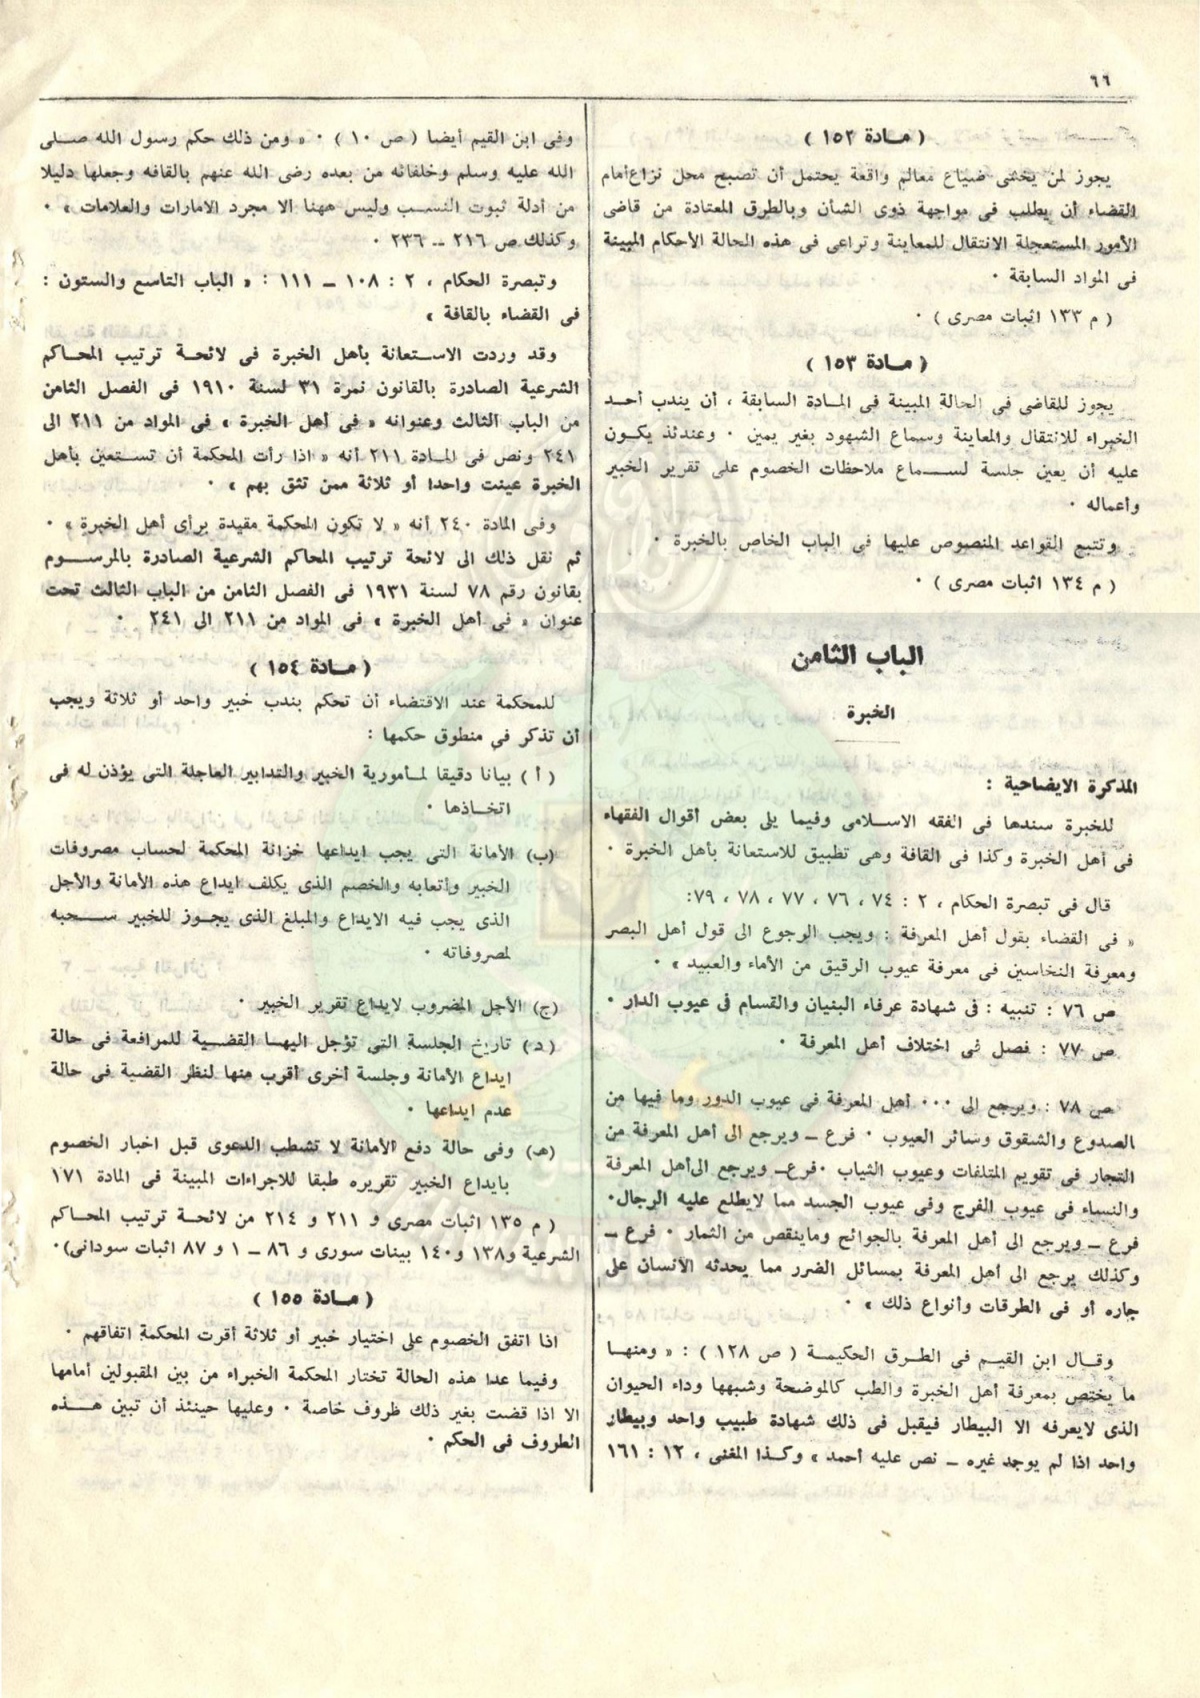 ٦٦
( مـادة ١٥٢ )
يجوز لمن يخشى ضياع معالم واقعة يحتمل أن تصبح محل نزاع أمام
القضاء أن يطلب فى مواجهة ذوى الشأن وبالطرق المعتادة من قاضى
الأمور المستعجلة الانتقال للمعاينة وتراعى فى هذه الحالة الأحكام المبينة
فى المواد السابقة ٠
( م ١٣٣ اثبات مصرى ) ٠
( مـادة ١٥٣ )
يجوز للقاضى فى الحالة المبينة فى المـادة السابقة ، أن يندب أحـد
الخبراء للانتقال والمعاينة وسماع الشهود بغير يمين ٠ وعندئذ يكـون
عليه أن يعين جلسة لســماع ملاحظات الخصوم على تقرير الخبير
وأعماله ٠
وتتبع القواعد المنصوص عليها فى الباب الخاص بالخبرة ٠
( م ١٣٤ اثبات مصرى ) ٠
الباب الثامن
الخبرة
المذكرة الايضاحية :
للخبرة سندها فى الفقه الاسـلامى وفيما يلى بعض أقوال الفقهاء
فى أهل الخبرة وكذا فى القافة وهى تطبيق للاستعانة بأهل الخبرة ٠
قال فى تبصرة الحكام ، ٢ : ٧٤ ، ٧٦ ، ٧٧ ، ٧٨ ، ٧٩:
« فى القضاء بقول أهل المعرفة : ويجب الرجوع الى قول أهل البصر
ومعرفة النخاسين فى معرفة عيوب الرقيق من الأماء والعبيد » ٠
ص ٧٦ : تنبيه : فى شهادة عرفاء البنيان والقسام فى عيوب الدار ٠
ص ٧٧ : فصل فى اختلاف أهل المعرفة ٠
ص ٧٨ : ويرجع الى ٠٠٠ أهل المعرفة فى عيوب الدور وما فيها من
الصدوع والشقوق وسائر العيوب ٠ فرع ــ ويرجع الى أهل المعرفة من
التجار فى تقويم المتلفات وعيوب الثياب ٠ فرع ــ ويرجع الى أهل المعرفة
والنساء فى عيوب الفرج وفى عيوب الجسد مما لايطلع عليه الرجال٠
فرع ــ ويرجع الى أهل المعرفة بالجوائح وماينقص من الثمار ٠ فرع ــ
وكذلك يرجع الى أهل المعرفة بمسائل الضرر مما يحدثه الأنسان على
جاره أو فى الطرقات وأنواع ذلك » ٠
وقـال ابن القيـم فى الطـرق الحكيمـة ( ص ١٢٨ ) : « ومنهـا
ما يختص بمعرفة أهل الخبرة والطب كالموضحة وشبهها وداء الحيوان
الذى لايعرفه الا البيطار فيقبل فى ذلك شهادة طبيب واحد وبيطار
واحد اذا لم يوجد غيره ــ نص عليه أحمد » وكـذا المغنى ، ١٢ : ١٦١
وفى ابن القيم أيضا ( ص ١٠ ) ٠ « ومن ذلك حكم رسول الله صـلى
الله عليه وسلم وخلفائه من بعده رضى الله عنهم بالقافه وجعلها دليلا
من أدلة ثبوت النسـب وليس ههنا الا مجرد الامارات والعلامات » ٠
وكذلك ص ٢١٦ ــ ٢٣٦ ٠
وتبصرة الحكام ، ٢ : ١٠٨ ــ ١١١ : « الباب التاسع والستون :
فى القضاء بالقافة »
وقـد وردت الاسـتعانة بأهل الخبرة فى لائحـة ترتيب المحـاكم
الشرعية الصادرة بالقانون نمرة ٣١ لسنة ١٩١٠ فى الفصل الثامن
من الباب الثالث وعنوانه « فى أهل الخبرة » فى المواد من ٢١١ الى
٢٤١ ونص فى المـادة ٢١١ أنه « اذا رأت المحكمة أن تسـتعين بأهل
الخبرة عينت واحدا أو ثلاثة ممن تثق بهم » ٠
وفى المادة ٢٤٠ أنه « لا تكون المحكمة مقيدة برأى أهل الخبرة » ٠
ثم نقل ذلك الى لائحة ترتيب المحاكم الشرعية الصادرة بالمرسـوم
بقانون رقم ٧٨ لسنة ١٩٣١ فى الفصل الثامن من الباب الثالث تحت
عنوان « فى أهل الخبرة » فى المواد من ٢١١ الى ٢٤١ ٠
( مـادة ١٥٤ )
للمحكمة عند الاقتضاء أن تحكم بندب خبير واحد أو ثلاثة ويجب
أن تذكر فى منطوق حكمها :
( أ ) بيانا دقيقا لمـأمورية الخبير والتدابير العاجلة التى يؤذن له فى
اتخـاذها ٠
(ب) الأمانة التى يجب ايداعها خزانة المحكمة لحساب مصروفات
الخبير وأتعابه والخصم الذى يكلف ايداع هذه الأمانة والأجل
الذى يجب فيه الايداع والمبلغ الذى يجـوز للخبير سـحبه
لمصروفاته ٠
(ج) الأجل المضروب لايداع تقرير الخبير ٠
( د ) تاريخ الجلسة التى تؤجل اليهـا القضـية للمرافعة فى حالة
ايداع الأمانة وجلسة أخرى أقرب منها لنظر القضية فى حالة
عدم ايداعها ٠
(هـ) وفى حالة دفع الأمانة لا تشطب الدعوى قبل اخبار الخصوم
بايداع الخبير تقريره طبقا للاجراءات المبينة فى المادة ١٧١
( م ١٣٥ اثبات مصرى و ٢١١ و ٢١٤ من لائحـة ترتيب المحـاكم
الشرعية و١٣٨ و١٤٠ بينات سورى و ٨٦ ــ ١ و ٨٧ اثبات سودانى)٠
( مـادة ١٥٥ )
اذا اتفق الخصوم على اختيار خبير أو ثلاثة أقرت المحكمة اتفاقهم ٠
وفيما عدا هذه الحالة تختار المحكمة الخبراء من بين المقبولين أمامها
الا اذا قضت بغير ذلك ظروف خاصة ٠ وعليها حينئذ أن تبين هـذه
الظروف فى الحكم ٠